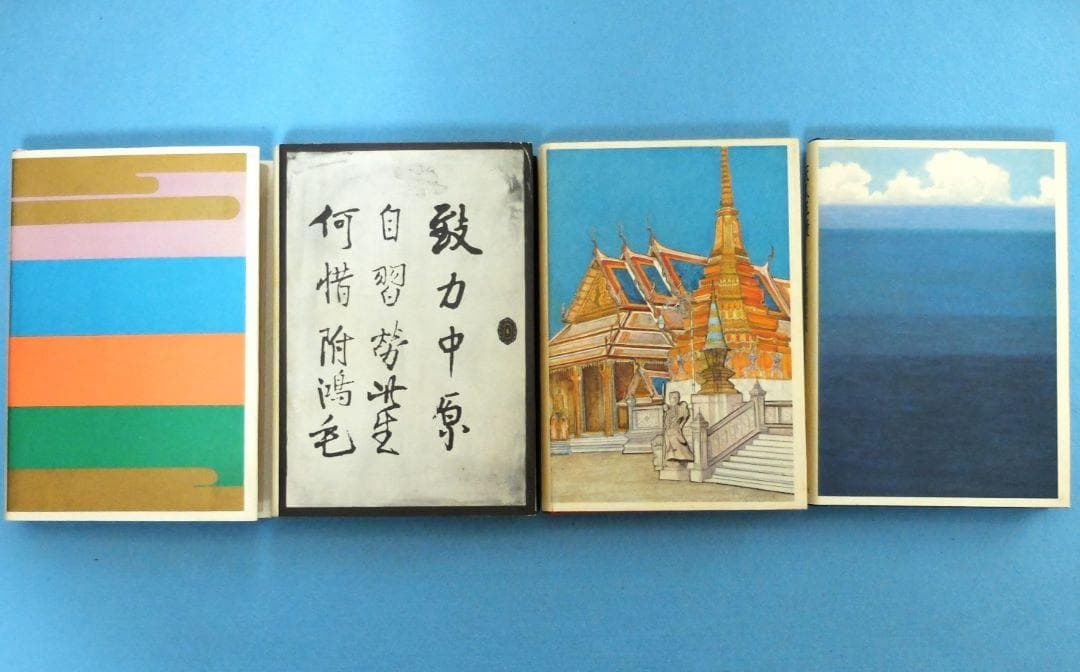 致力中原
自習勞此生
何惜附鴻毛